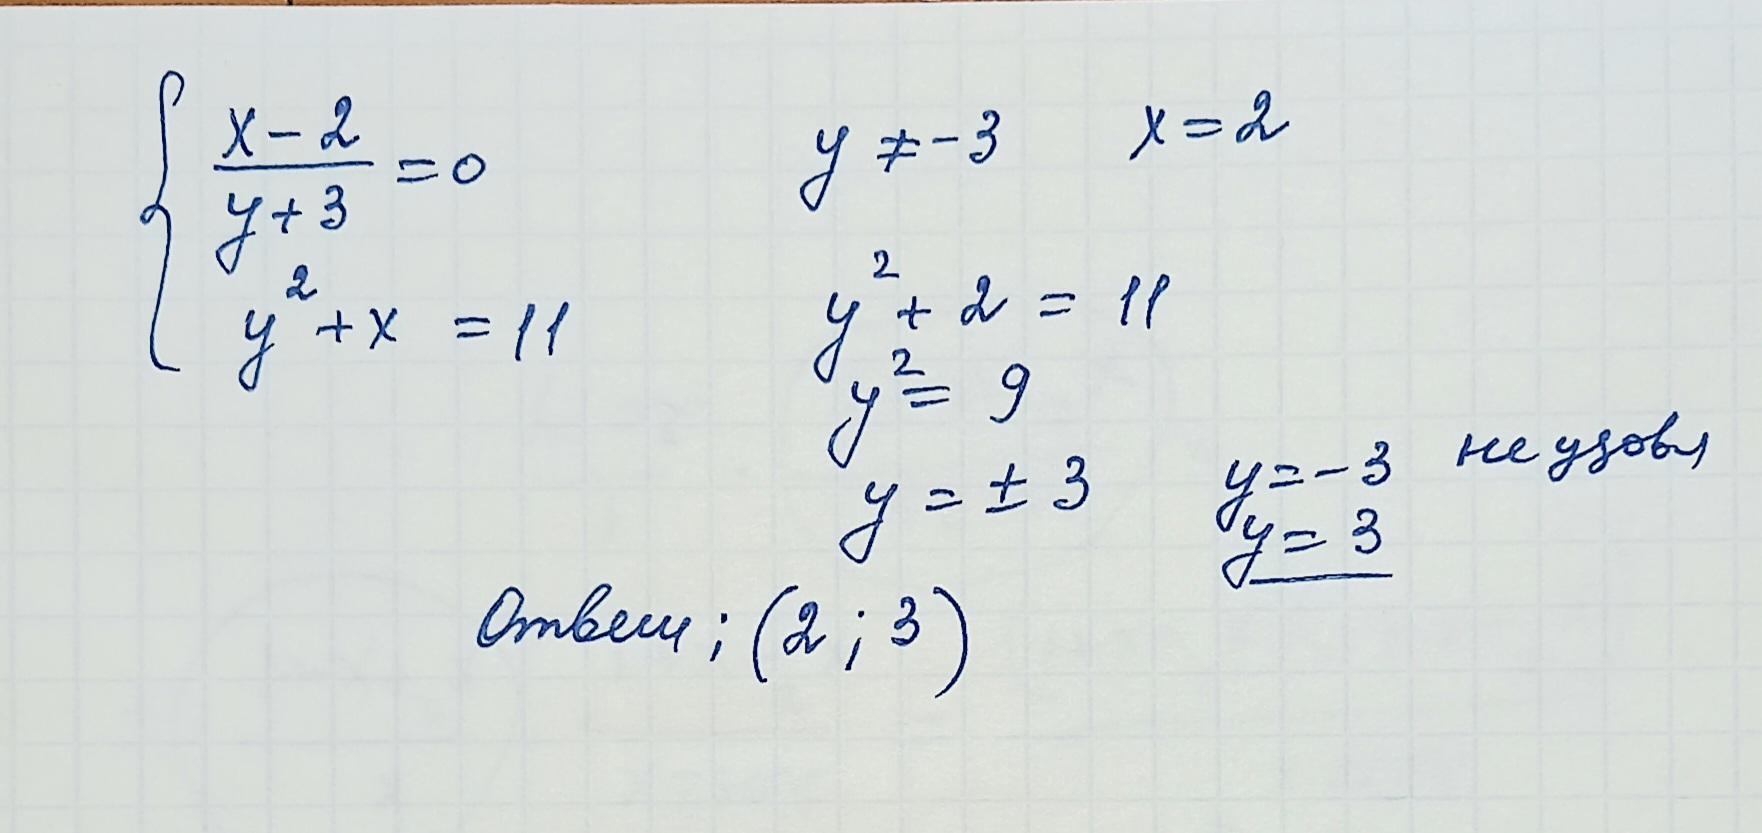 x-2/y+3 = 0
y² + x = 11
y ≠ -3 x = 2
y² + 2 = 11
y² = 9
y = ± 3
y = -3 не удовл
y = 3
Ответ; (2 ; 3)